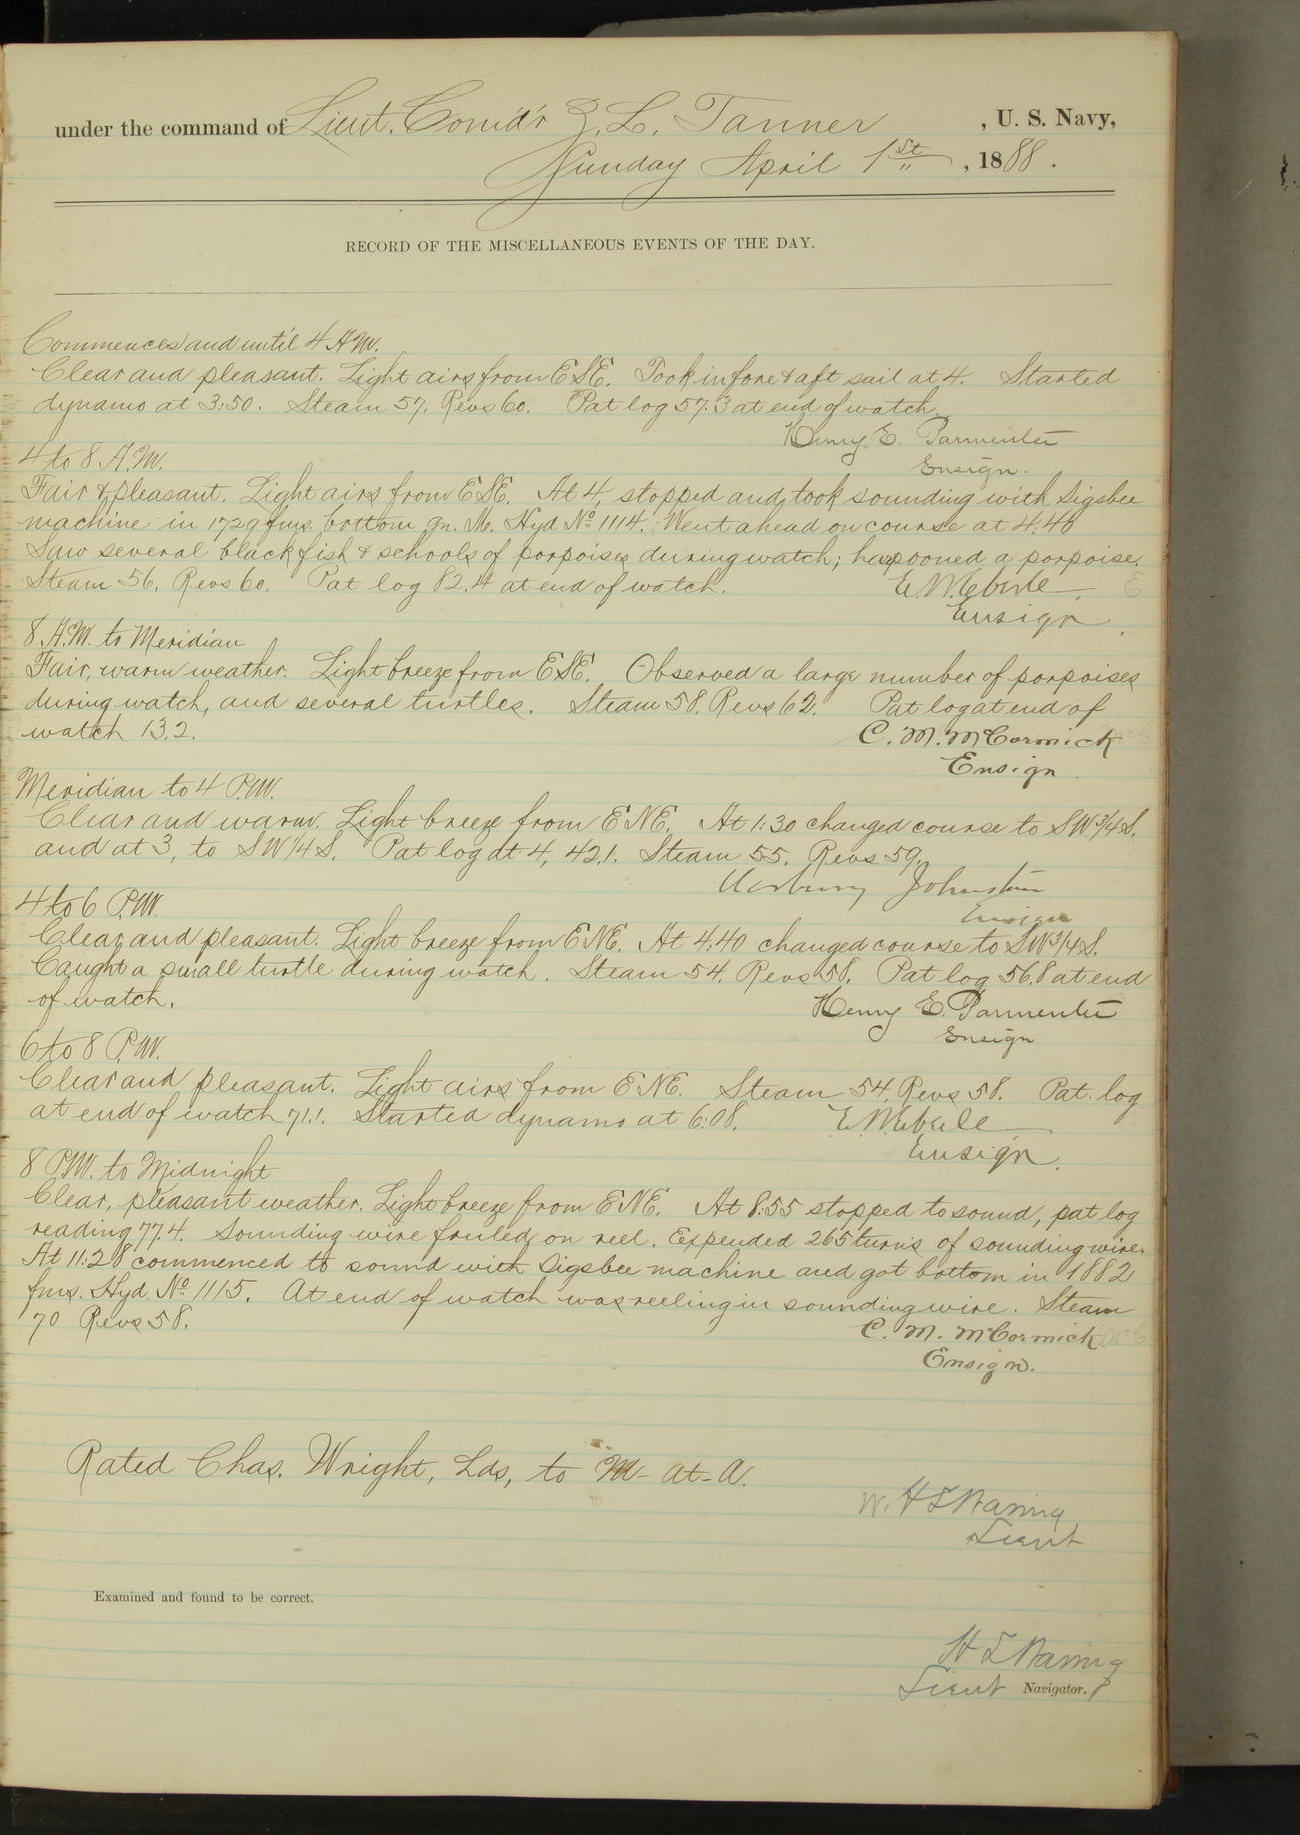 under the command of Lieut. Comd'r Z. L. Tanner , U. S. Navy,
Sunday April 1st , 1888 .
RECORD OF THE MISCELLANEOUS EVENTS OF THE DAY.
Commences and until 4 A.M.
Clear and pleasant. Light airs from ESE. Took in fore & aft sail at 4. Started
dynamo at 3:50. Steam 57. Revs 60. Pat log 57.3 at end of watch.
Henry E. Parmenter
Ensign.
4 to 8 A.M.
Fair & pleasant. Light airs from ESE. At 4, stopped and took sounding with Sigsbee
machine in 1729 fms. bottom gn. M. Hyd No. 1114. Went ahead on course at 4:40
Saw several blackfish & schools of porpoises during watch; harpooned a porpoise.
Steam 56. Revs 60. Pat log 82.4 at end of watch.
E. W. Eberle
Ensign.
8 A.M. to Meridian
Fair, warm weather. Light breeze from ESE. Observed a large number of porpoises
during watch, and several turtles. Steam 58. Revs 62. Pat log at end of
watch 13.2.
C. M. McCormick
Ensign.
Meridian to 4 P.M.
Clear and warm. Light breeze from ENE. At 1:30 changed course to SW 3/4 S.
and at 3, to SW 1/4 S. Pat log at 4, 42.1. Steam 55. Revs 59.
Marbury Johnston
Ensign
4 to 6 P.M.
Clear and pleasant. Light breeze from ENE. At 4:40 changed course to SW 3/4 S.
Caught a small turtle during watch. Steam 54. Revs 58. Pat log 56.8 at end
of watch.
Henry E. Parmenter
Ensign
6 to 8 P.M.
Clear and pleasant. Light airs from ENE. Steam 54. Revs 58. Pat. log
at end of watch 71.1. Started dynamo at 6:08.
E. W. Eberle
Ensign.
8 P.M. to Midnight
Clear, pleasant weather. Light breeze from ENE. At 8:55 stopped to sound, pat log
reading 77.4. Sounding wire fouled on reel. Expended 265 turns of sounding wire.
At 11:28 commenced to sound with Sigsbee machine and got bottom in 1882
fms. Hyd. No. 1115. At end of watch was reeling in sounding wire. Steam
70 Revs 58.
C. M. McCormick
Ensign.
Rated Chas. Wright, Lds, to M-at-A.
H E Waring
Lieut
Examined and found to be correct.
H E Waring
Lieut Navigator.